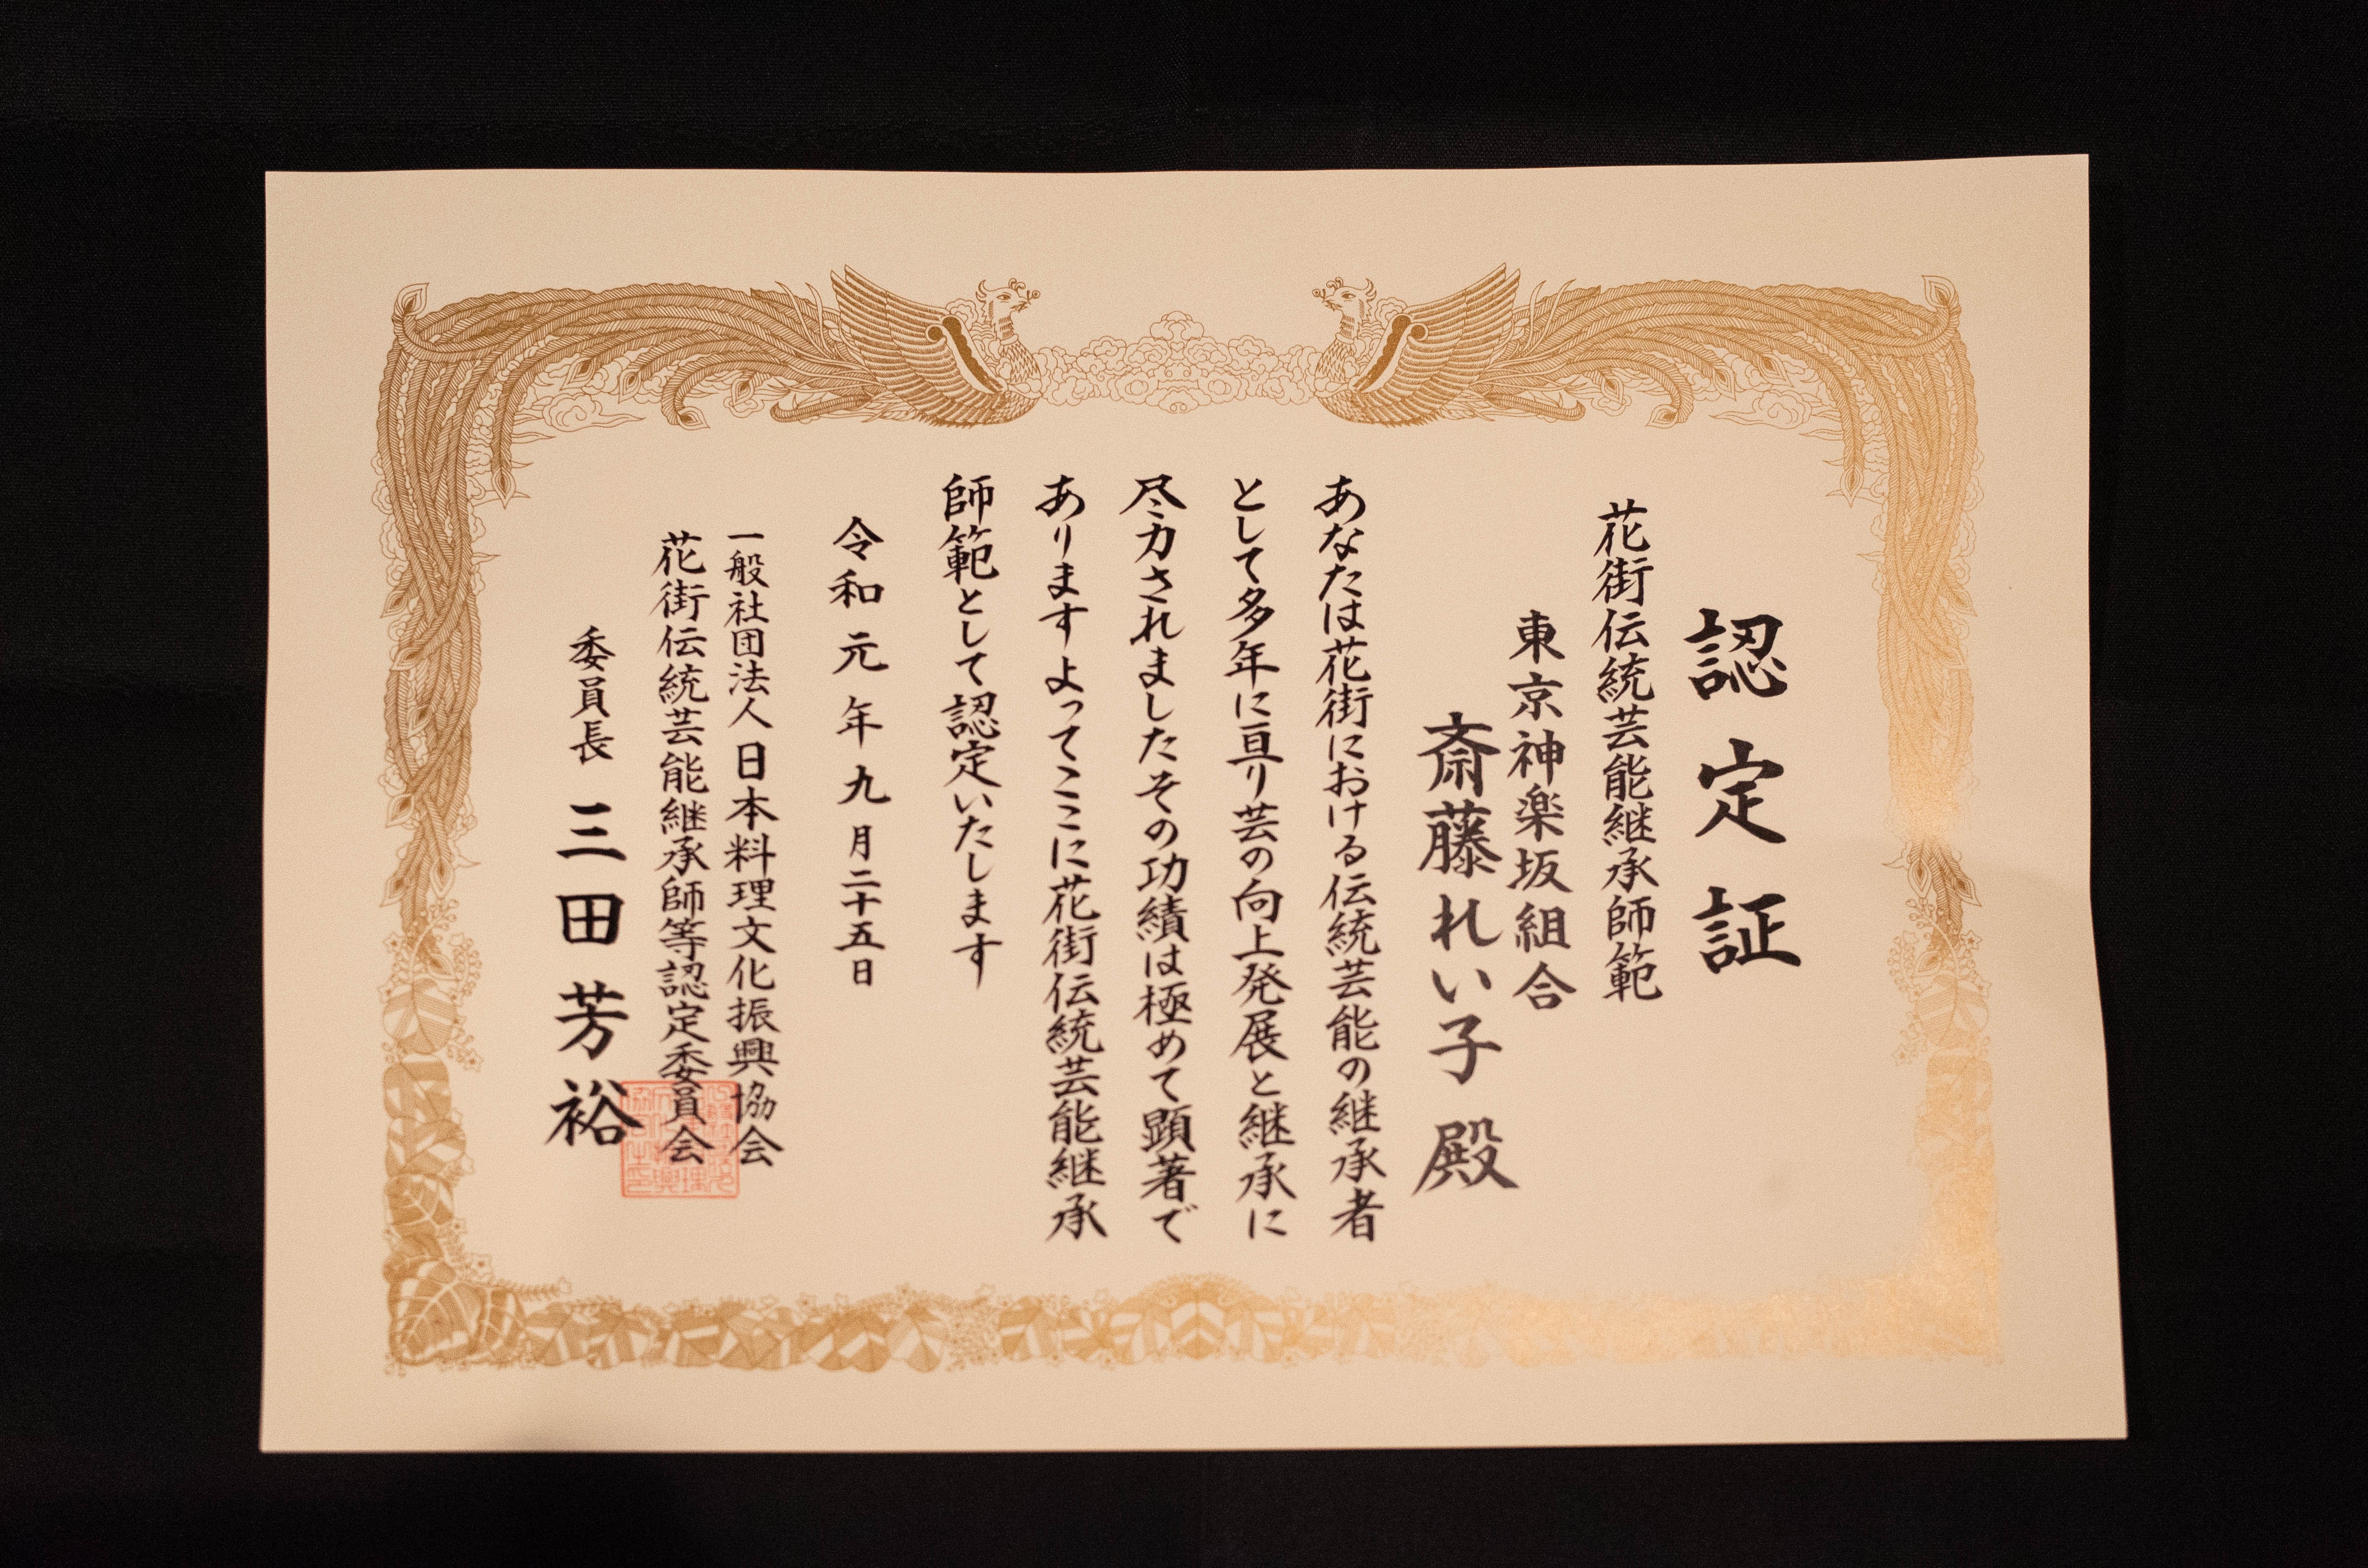 認定証
花街伝統芸能継承師範
東京神楽坂組合
斎藤れい子殿
あなたは花街における伝統芸能の継承者
として多年に亘り芸の向上発展と継承に
尽力されましたその功績は極めて顕著で
ありますよってここに花街伝統芸能継承
師範として認定いたします
令和元年九月二十五日
一般社団法人日本料理文化振興協会
花街伝統芸能継承師等認定委員会
委員長 三田芳裕